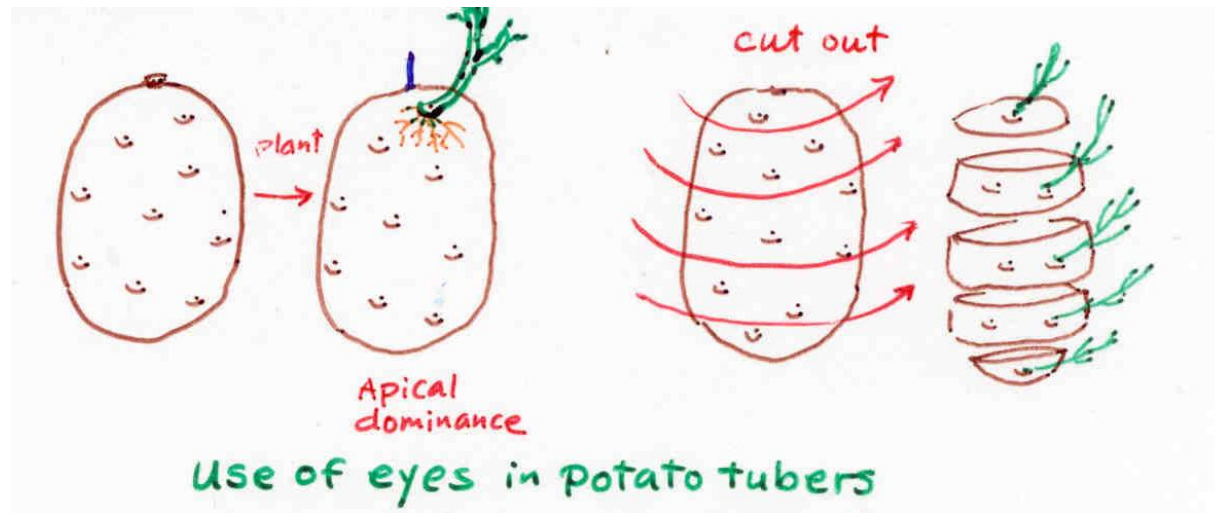 cut out
plant
Apical
dominance
use of eyes in potato tubers